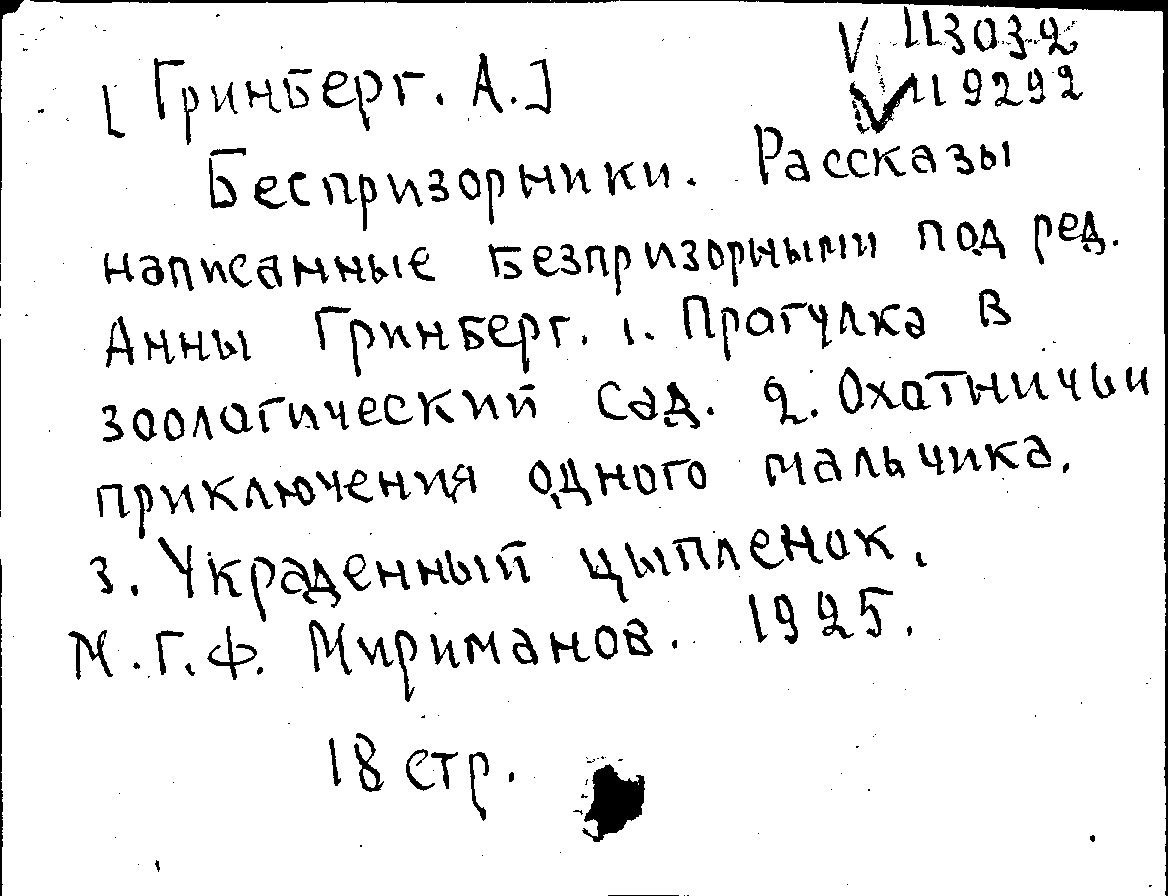 V 113032
[Гринберг. А.] V 119292
Беспризорники. Рассказы
написанные безпризорными под ред.
Анны Гринберг. 1. Прогулка в
зоологический сад. 2. Охатничьи
приключения одного мальчика.
3. Украденный цыпленок.
М. Г.Ф. Мириманов. 1925.
18 стр.